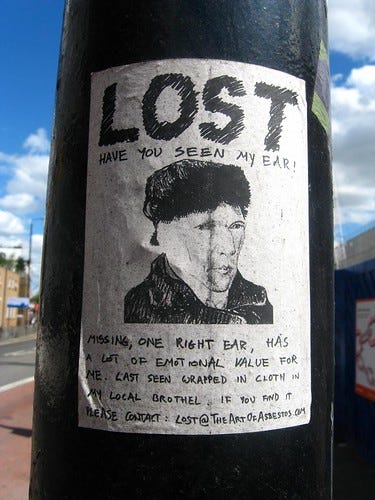 LOST
HAVE YOU SEEN MY EAR!
MISSING, ONE RIGHT EAR, HAS
A LOT OF EMOTIONAL VALUE FOR
ME. LAST SEEN WRAPPED IN CLOTH IN
MY LOCAL BROTHEL. IF YOU FIND IT
PLEASE CONTACT: LOST@THEARTOFASBESTOS.COM